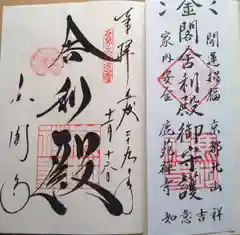 開運招福 京都北山
金閣舎利殿御守護
家内安全 鹿苑禅寺
如意吉祥
奉拝 平成二十九年
十一月十八日
舎利殿
金閣寺